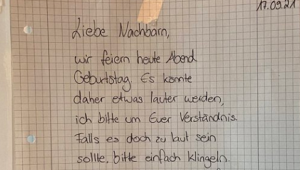 17.09.21
Liebe Nachbarn,
wir feiern heute Abend
Geburtstag. Es könnte
daher etwas lauter werden,
ich bitte um Euer Verständnis.
Falls es doch zu laut sein
sollte, bitte einfach klingeln.